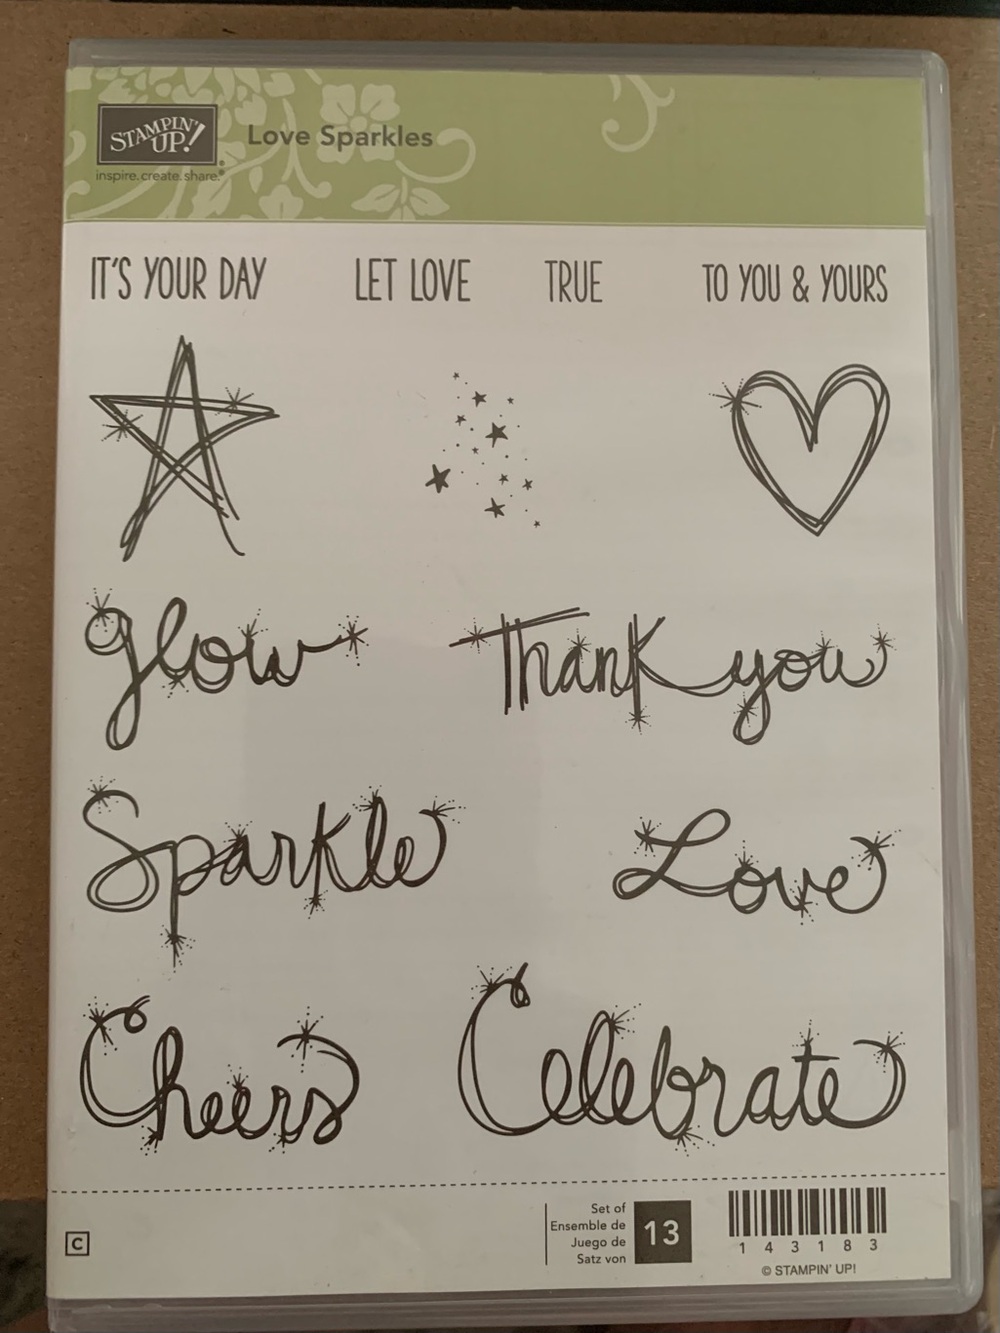 STAMPIN' UP!
inspire.create.share.®
Love Sparkles
IT'S YOUR DAY
LET LOVE
TRUE
TO YOU & YOURS
glow
Thank you
Sparkle
Love
Cheers
Celebrate
C
Set of
Ensemble de
Juego de
Satz von
13
1 4 3 1 8 3
© STAMPIN' UP!